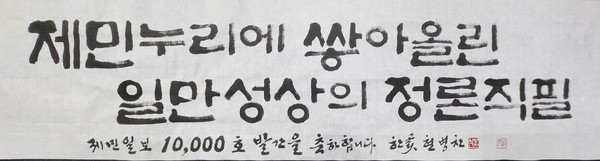 제민누리에 쌓아올린
일만성상의 정론직필
제민일보 10,000호 발간을 축하합니다. 한곬 현병찬